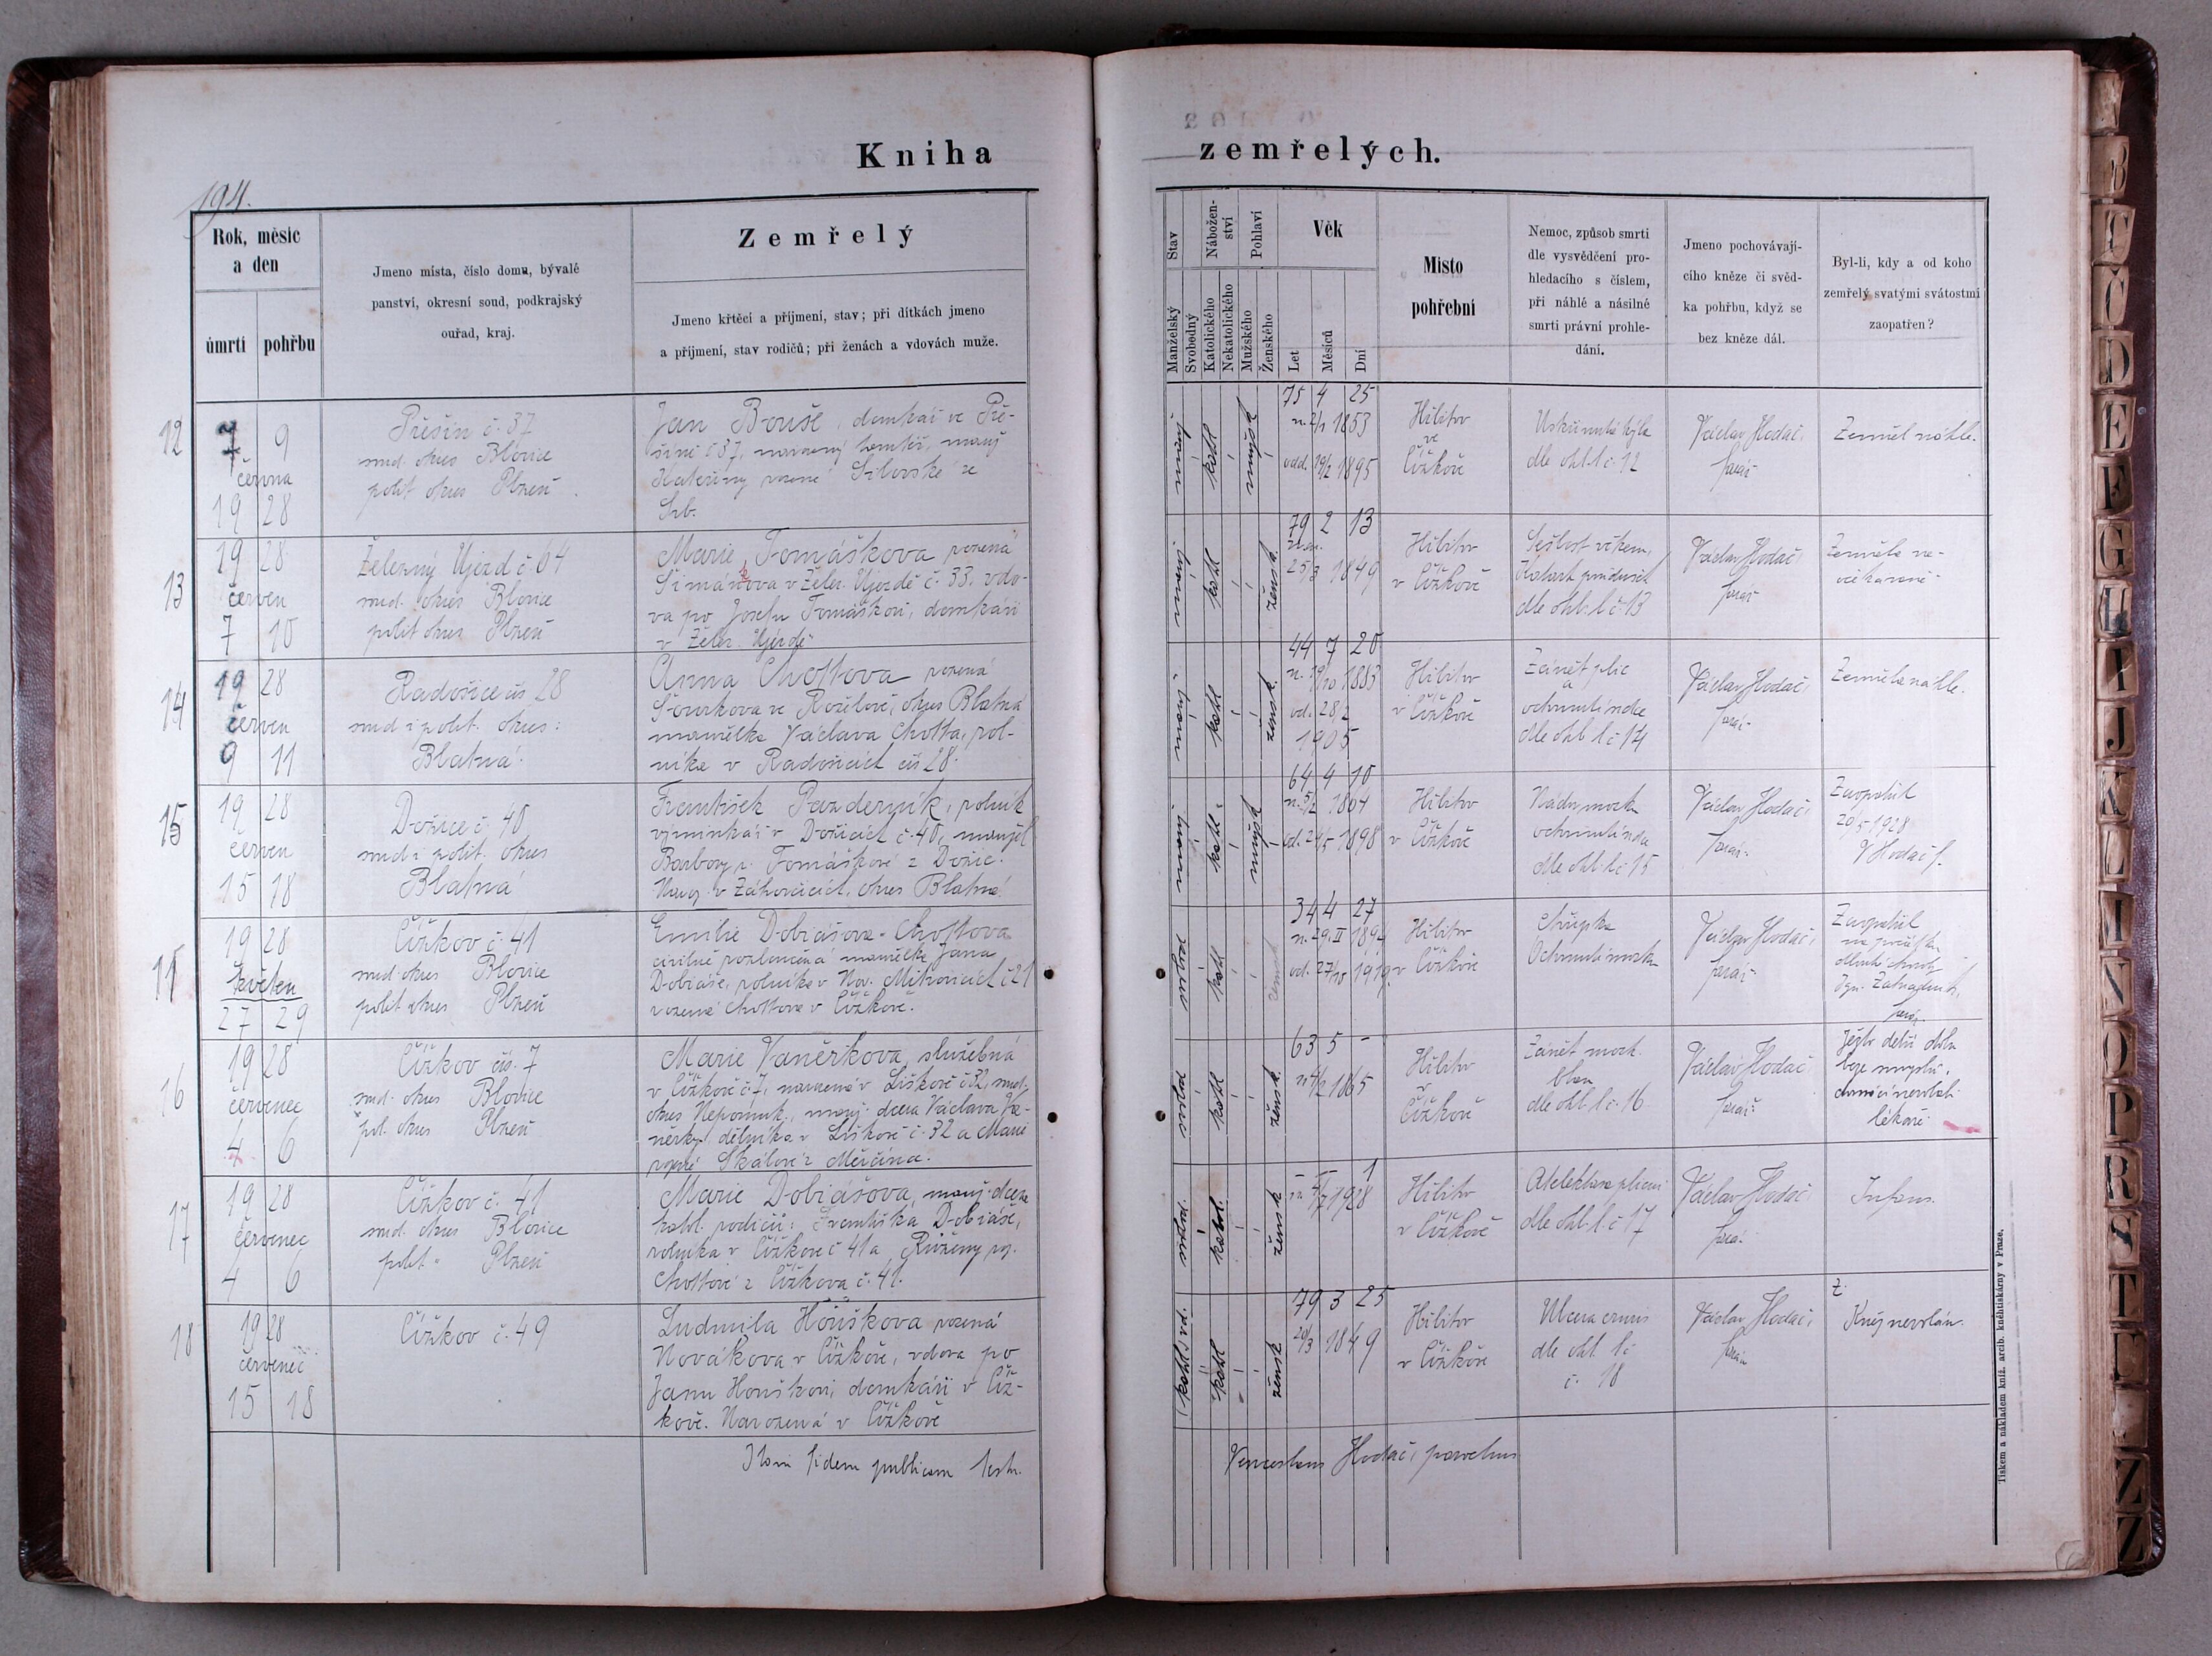 Kniha
zemřelých.
194.
Rok, měsíc
a den
úmrtí
pohřbu
Jmeno místa, číslo domu, bývalé
panství, okresní soud, podkrajský
ouřad, kraj.
Zemřelý
Jmeno křtěcí a příjmení, stav; při dítkách jmeno
a příjmení, stav rodičů; při ženách a vdovách muže.
Stav
Manželský
Svobodný
Nábožen-
ství
Katolického
Nekatolického
Pohlaví
Mužského
Ženského
Věk
Let
Měsíců
Dní
Místo
pohřební
Nemoc, způsob smrti
dle vysvědčení pro-
hledacího s číslem,
při náhlé a násilné
smrti právní prohle-
dání.
Jmeno pochovávají-
cího kněze či svěd-
ka pohřbu, když se
bez kněze dál.
Byl-li, kdy a od koho
zemřelý svatými svátostmi
zaopatřen?
12
7 9
června
19 28
Přešín č. 37
soud. okres Blovice
polit okres Plzeň
Jan Bouše, domkář ve Pře-
šíně č 37, narozený tamtéž, manž
Kateřiny rozené Silovské ze
Srb.
katol
mužsk
75 4 25
n. 2/1 1853
odd. 19/2 1895
Hřbitov
ve
Čížkově
Uskřinutá kýla
dle ohl. l. č. 12
Václav Hodač,
farář
Zemřel náhle.
13
19 28
červen
7 10
Železný Újezd č. 64
soud. okres Blovice
polit okres Plzeň
Marie Tomáškova rozená
Šimánova v Želez. Újezdě č. 33. vdo-
va po Josefu Tomáškovi, domkáři
v Želez. Újezdě
katol
žensk.
79 2 13
nar.
25/3 1849
Hřbitov
v Čížkově
Sešlost věkem,
Katarh průdušek
dle ohl. l. č. 13
Václav Hodač,
farář
Zemřela ne-
očekávaně
14
19 28
červen
9 11
Radošice čís 28
soud i polit. okres:
Blatná
Anna Chottova rozená
Sourkova ve Rožělově, okres Blatná
manželka Václava Chotta, rol-
níka v Radošicích čís 28.
katol
žensk.
44 7 20
n. 19/10 1883
od. 28/2
1905
Hřbitov
v Čížkově
Zánět plic
a
ochrnutí srdce
dle ohl. l. č 14
Václav Hodač,
farář
Zemřela náhle.
15
19 28
červen
15 18
Dožice č. 40
soud i polit. okres
Blatná
František Pazderník, rolník
výminkář v Dožicích č. 40, manžel
Barbory r. Tomáškové z Dožic.
Naroz. v Záhorčicích, okres Blatná.
katol.
mužsk
64 4 10
n. 5/2 1864
od. 24/5 1898
Hřbitov
v Čížkově
Nádor mozku
ochrnutí srdce
dle ohl. l. č 15
Václav Hodač,
farář
Zaopatřil
20/5 1928
V Hodač f.
11
19 28
květen
27 29
Čížkov č. 41
soud. okres Blovice
polit okres Plzeň
Emilie Dobiášova - Chottova
civilně rozloučená manželka Jana
Dobiáše, rolníka v Nov. Mitrovicích č 21
rozená Chottova v Čížkově.
katol
žensk
34 4 27
n. 29. II 1894
od. 27/10 1919.
Hřbitov
v Čížkově
Chřipka
Ochrnutí mozku
Václav Hodač,
farář
Zaopatřil
16
19 28
červenec
4 6
Čížkov čís. 7
soud. okres Blovice
pol. okres Plzeň
Marie Vaněrkova, služebná
v Čížkově č 7, narozená v Liškově č 32, soud.
okres Nepomuk., manž. dcera Václava Va-
něrky dělníka v Liškově č. 32 a Marie
rozené Skálové z Měčína.
svobod
katol
žensk.
63 5 -
n 4/2 1865
Hřbitov
v
Čížkově
Zánět mozk.
blan
dle ohl. l. č. 16
Václav Hodač
farář
lékaře
17
19 28
červenec
4 6
Čížkov č. 41
soud. okres Blovice
polit " Plzeň
Marie Dobiášova, manž. dcera
katol. rodičů: Františka Dobiáše,
rolníka v Čížkově č 41 a Růženy roz.
Chottové z Čížkova č. 41.
svobod.
katol.
žensk
- - 1
n. 4/7 1928
Hřbitov
v Čížkově
Atelektasa plicní
dle ohl. l. č 17
Václav Hodač,
farář
Infans.
18
19 28
červenec
15 18
Čížkov č. 49
Ludmila Houškova rozená
Novákova v Čížkově, vdova po
Janu Houškovi, domkáři v Číž-
kově. Narozená v Čížkově
katol
žensk
79 3 25
20/3 1849
Hřbitov
v Čížkově
Ulcera cruris
dle ohl. l. č
č. 18
Václav Hodač,
farář
Kněz nevolán.
fidem publicam
Venceslaus Hodač, parochus
Tiskem a nákladem kníž. arcib. kněhtiskárny v Praze.
B
T
Č
D
E
F
G
H
I
J
K
L
I
N
O
P
R
S
T
Z
Z